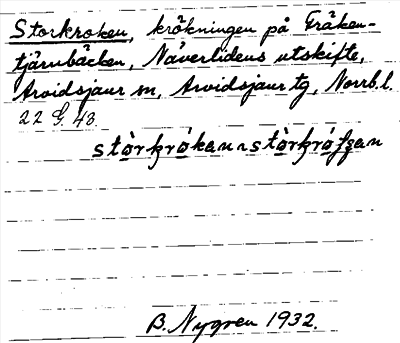 Storkroken, krökningen på Gråken-
tjärnbäcken, Näverlidens utskifte,
Arvidsjaur sn, Arvidsjaur tg, Norrb. l.
22 G. 43.
B. Nygren 1932.